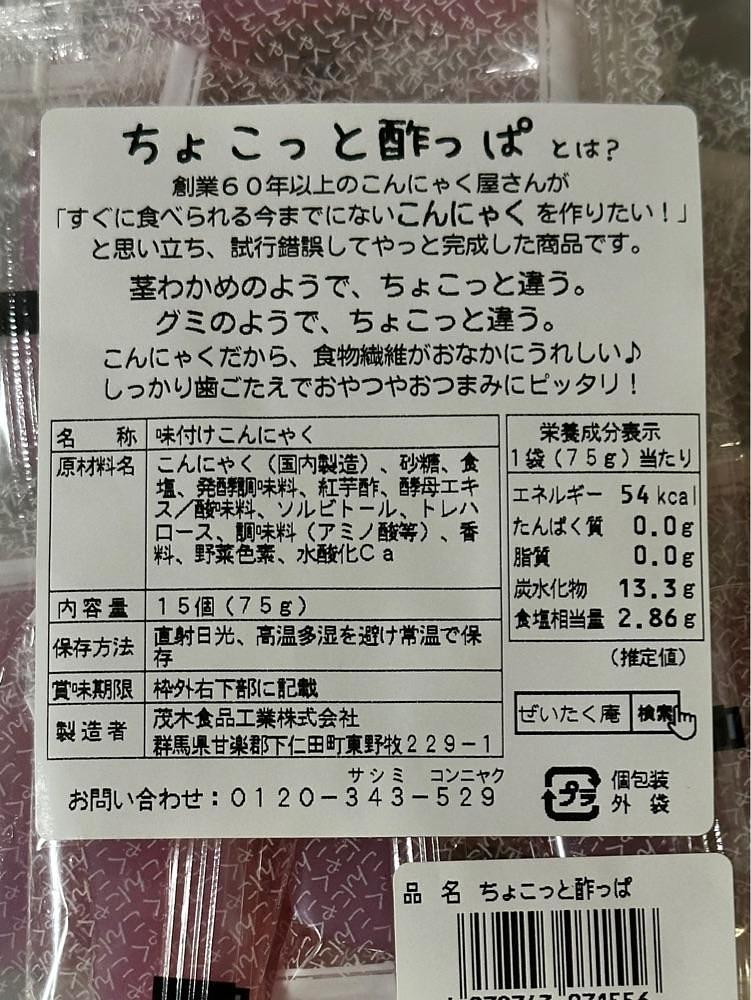 ちょこっと酢っぱ とは?
創業60年以上のこんにゃく屋さんが
「すぐに食べられる今までにないこんにゃく を作りたい!」
と思い立ち、試行錯誤してやっと完成した商品です。
茎わかめのようで、ちょこっと違う。
グミのようで、ちょこっと違う。
こんにゃくだから、食物繊維がおなかにうれしい♪
しっかり歯ごたえでおやつやおつまみにピッタリ!
名 称 味付けこんにゃく
原材料名 こんにゃく(国内製造)、砂糖、食
塩、発酵調味料、紅芋酢、酵母エキ
ス/酸味料、ソルビトール、トレハ
ロース、調味料(アミノ酸等)、香
料、野菜色素、水酸化Ca
内容量 15個(75g)
保存方法 直射日光、高温多湿を避け常温で保
存
賞味期限 枠外右下部に記載
製造者 茂木食品工業株式会社
群馬県甘楽郡下仁田町東野牧229-1
栄養成分表示
1袋(75g)当たり
エネルギー 54kcal
たんぱく質 0.0g
脂質 0.0g
炭水化物 13.3g
食塩相当量 2.86g
(推定値)
ぜいたく庵 検索
サシミ コンニャク
お問い合わせ:0120-343-529
プラ
個包装
外 袋
品 名 ちょこっと酢っぱ